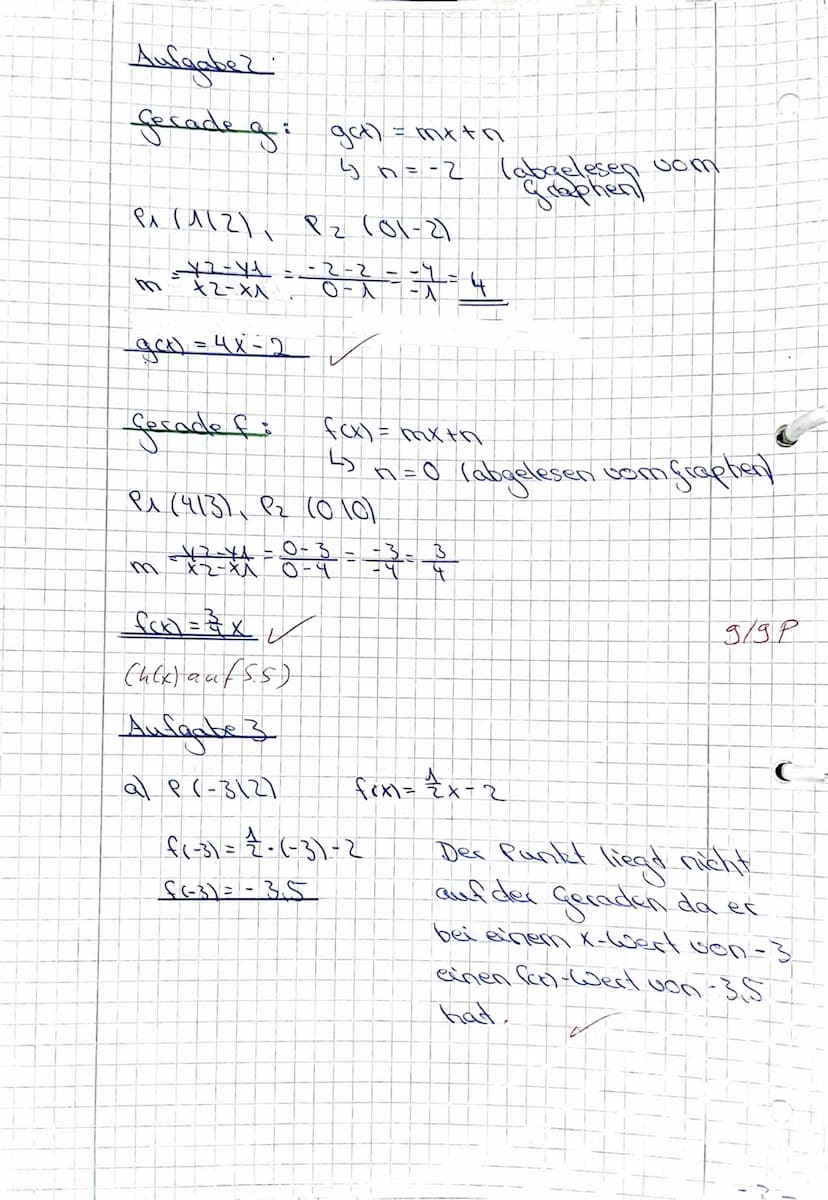 Aufgabe 2
Gerade g: g(x) = mx + n
↳ n = -2 (abgelesen vom
Graphen)
P1 (1|2), P2 (0|-2)
m = y2-y1 / x2-x1 = -2-2 / 0-1 = -4 / -1 = 4
g(x) = 4x - 2 ✓
Gerade f: f(x) = mx + n
↳ n = 0 (abgelesen vom Graphen)
P1 (4|3), P2 (0|0)
m = y2-y1 / x2-x1 = 0-3 / 0-4 = -3 / -4 = 3 / 4
f(x) = 3/4 x ✓ 9/9P
(h(x) auf S.5)
Aufgabe 3
a) P (-3|2) f(x) = 1/2 x - 2
f(-3) = 1/2 · (-3) - 2
f(-3) = -3,5
Der Punkt liegt nicht
auf der Geraden da er
bei einem x-Wert von -3
einen f(x)-Wert von -3,5
hat. ✓